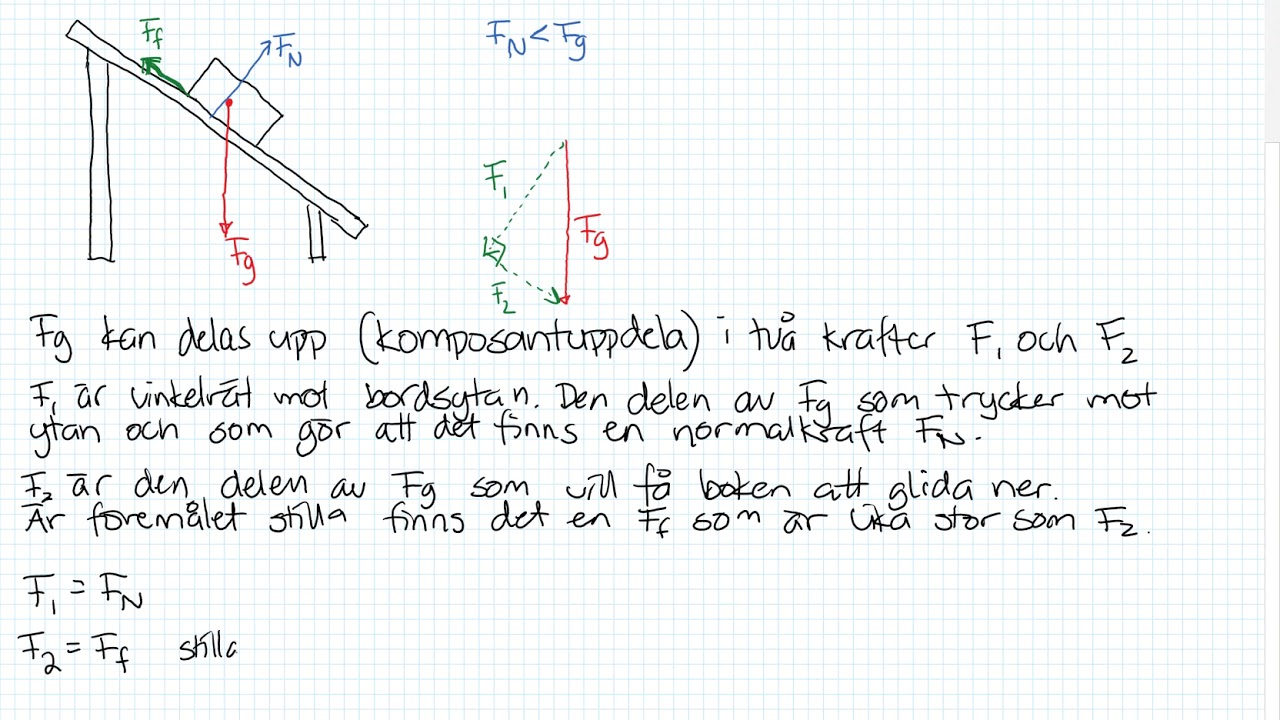 Ff
FN
FN < Fg
F1
Fg
Fg
F2
Fg kan delas upp (komposantuppdela) i två krafter F1 och F2
F1 är vinkelrät mot bordsytan. Den delen av Fg som trycker mot
ytan och som gör att det finns en normalkraft FN.
F2 är den delen av Fg som vill få boken att glida ner.
Är föremålet stilla finns det en Ff som är lika stor som F2.
F1 = FN
F2 = Ff stilla